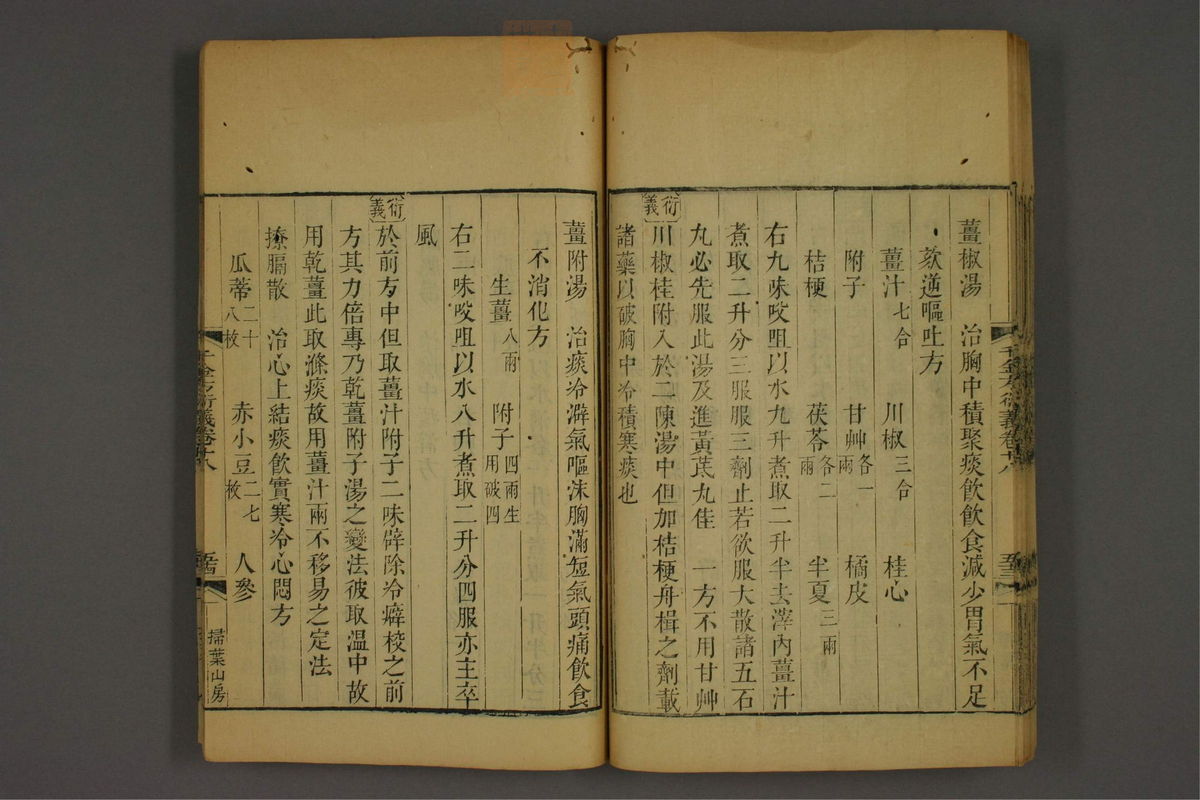 薑椒湯　治胸中積聚痰飲飲食減少胃氣不足
欬逆嘔吐方
薑汁七合　川椒三合　桂心
附子　甘艸各一兩　橘皮
桔梗　茯苓各二兩　半夏三兩
右九味㕮咀以水九升煮取二升半去滓內薑汁
煮取二升分三服服三劑止若欲服大散諸五石
丸必先服此湯及進黃芪丸佳　一方不用甘艸
衍義　川椒桂附入於二陳湯中但加桔梗舟楫之劑載
諸藥以破胸中冷積寒痰也
千金方衍義卷十八
五十三
薑附湯　治痰冷澼氣嘔沫胸滿短氣頭痛飲食
不消化方
生薑八兩　附子四兩生用破四
右二味㕮咀以水八升煮取二升分四服亦主卒
風
衍義　於前方中但取薑汁附子二味辟除冷癖棱之前
方其力倍專乃乾薑附子湯之變法彼取温中故
用乾薑此取滌痰故用薑汁兩不移易之定法
撩膈散　治心上結痰飲實寒冷心悶方
瓜蒂二十八枚　赤小豆二七枚　人參
千金方衍義卷十八
五十四
掃葉山房